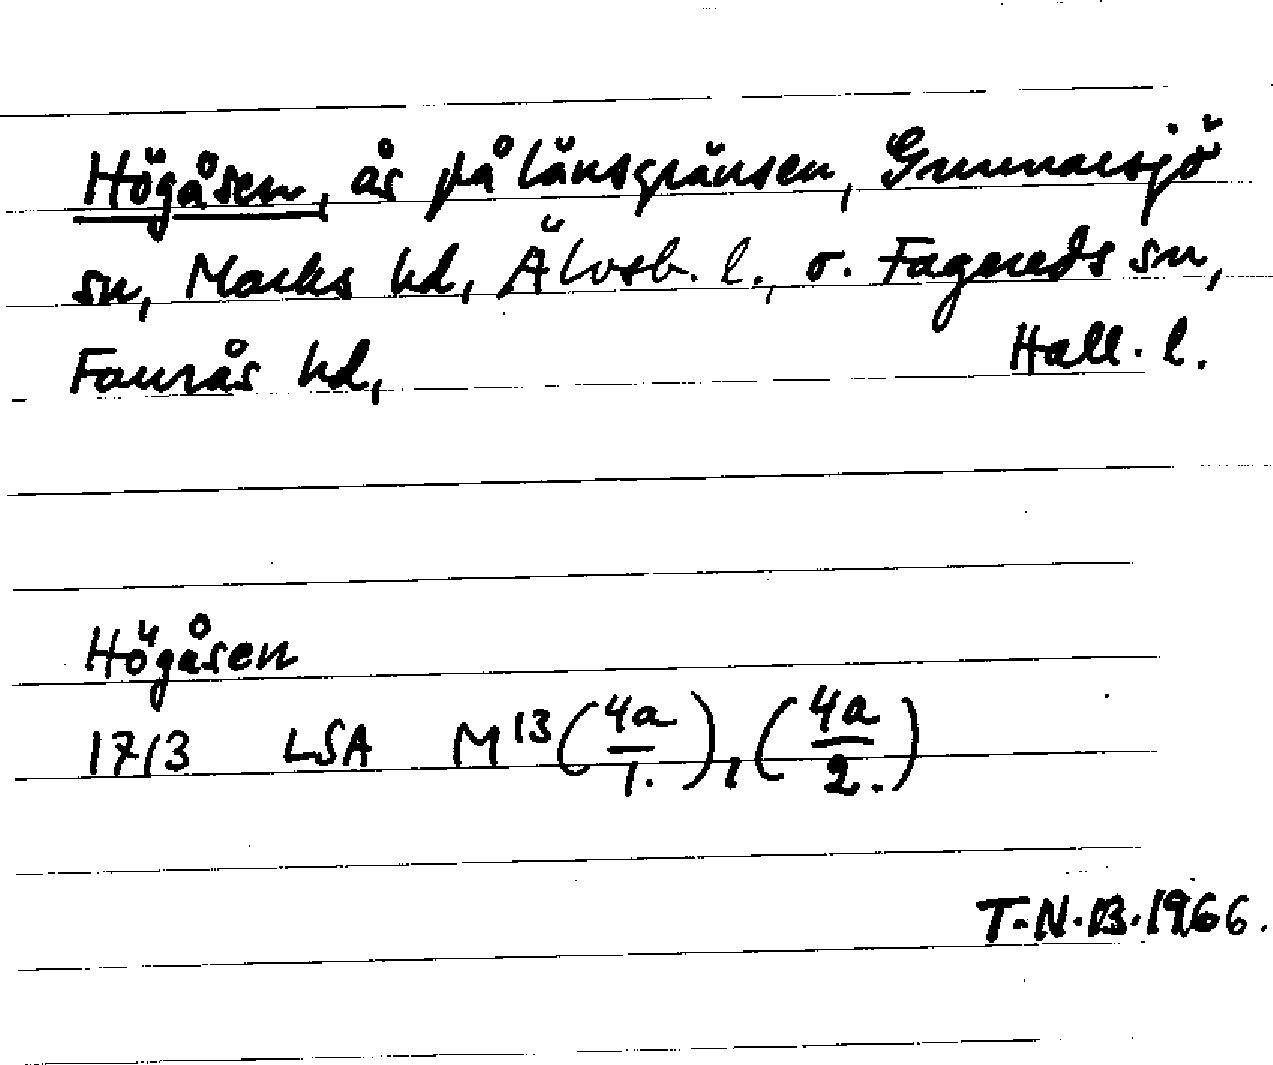 Högåsen, ås på länsgränsen, Gunnarsjö
sn, Marks hd, Älvsb. l., o. Fagereds sn,
Faurås hd, Hall. l.
Högåsen
1713 LSA M 13 (4a/1.), (4a/2.)
T-N.B. 1966.